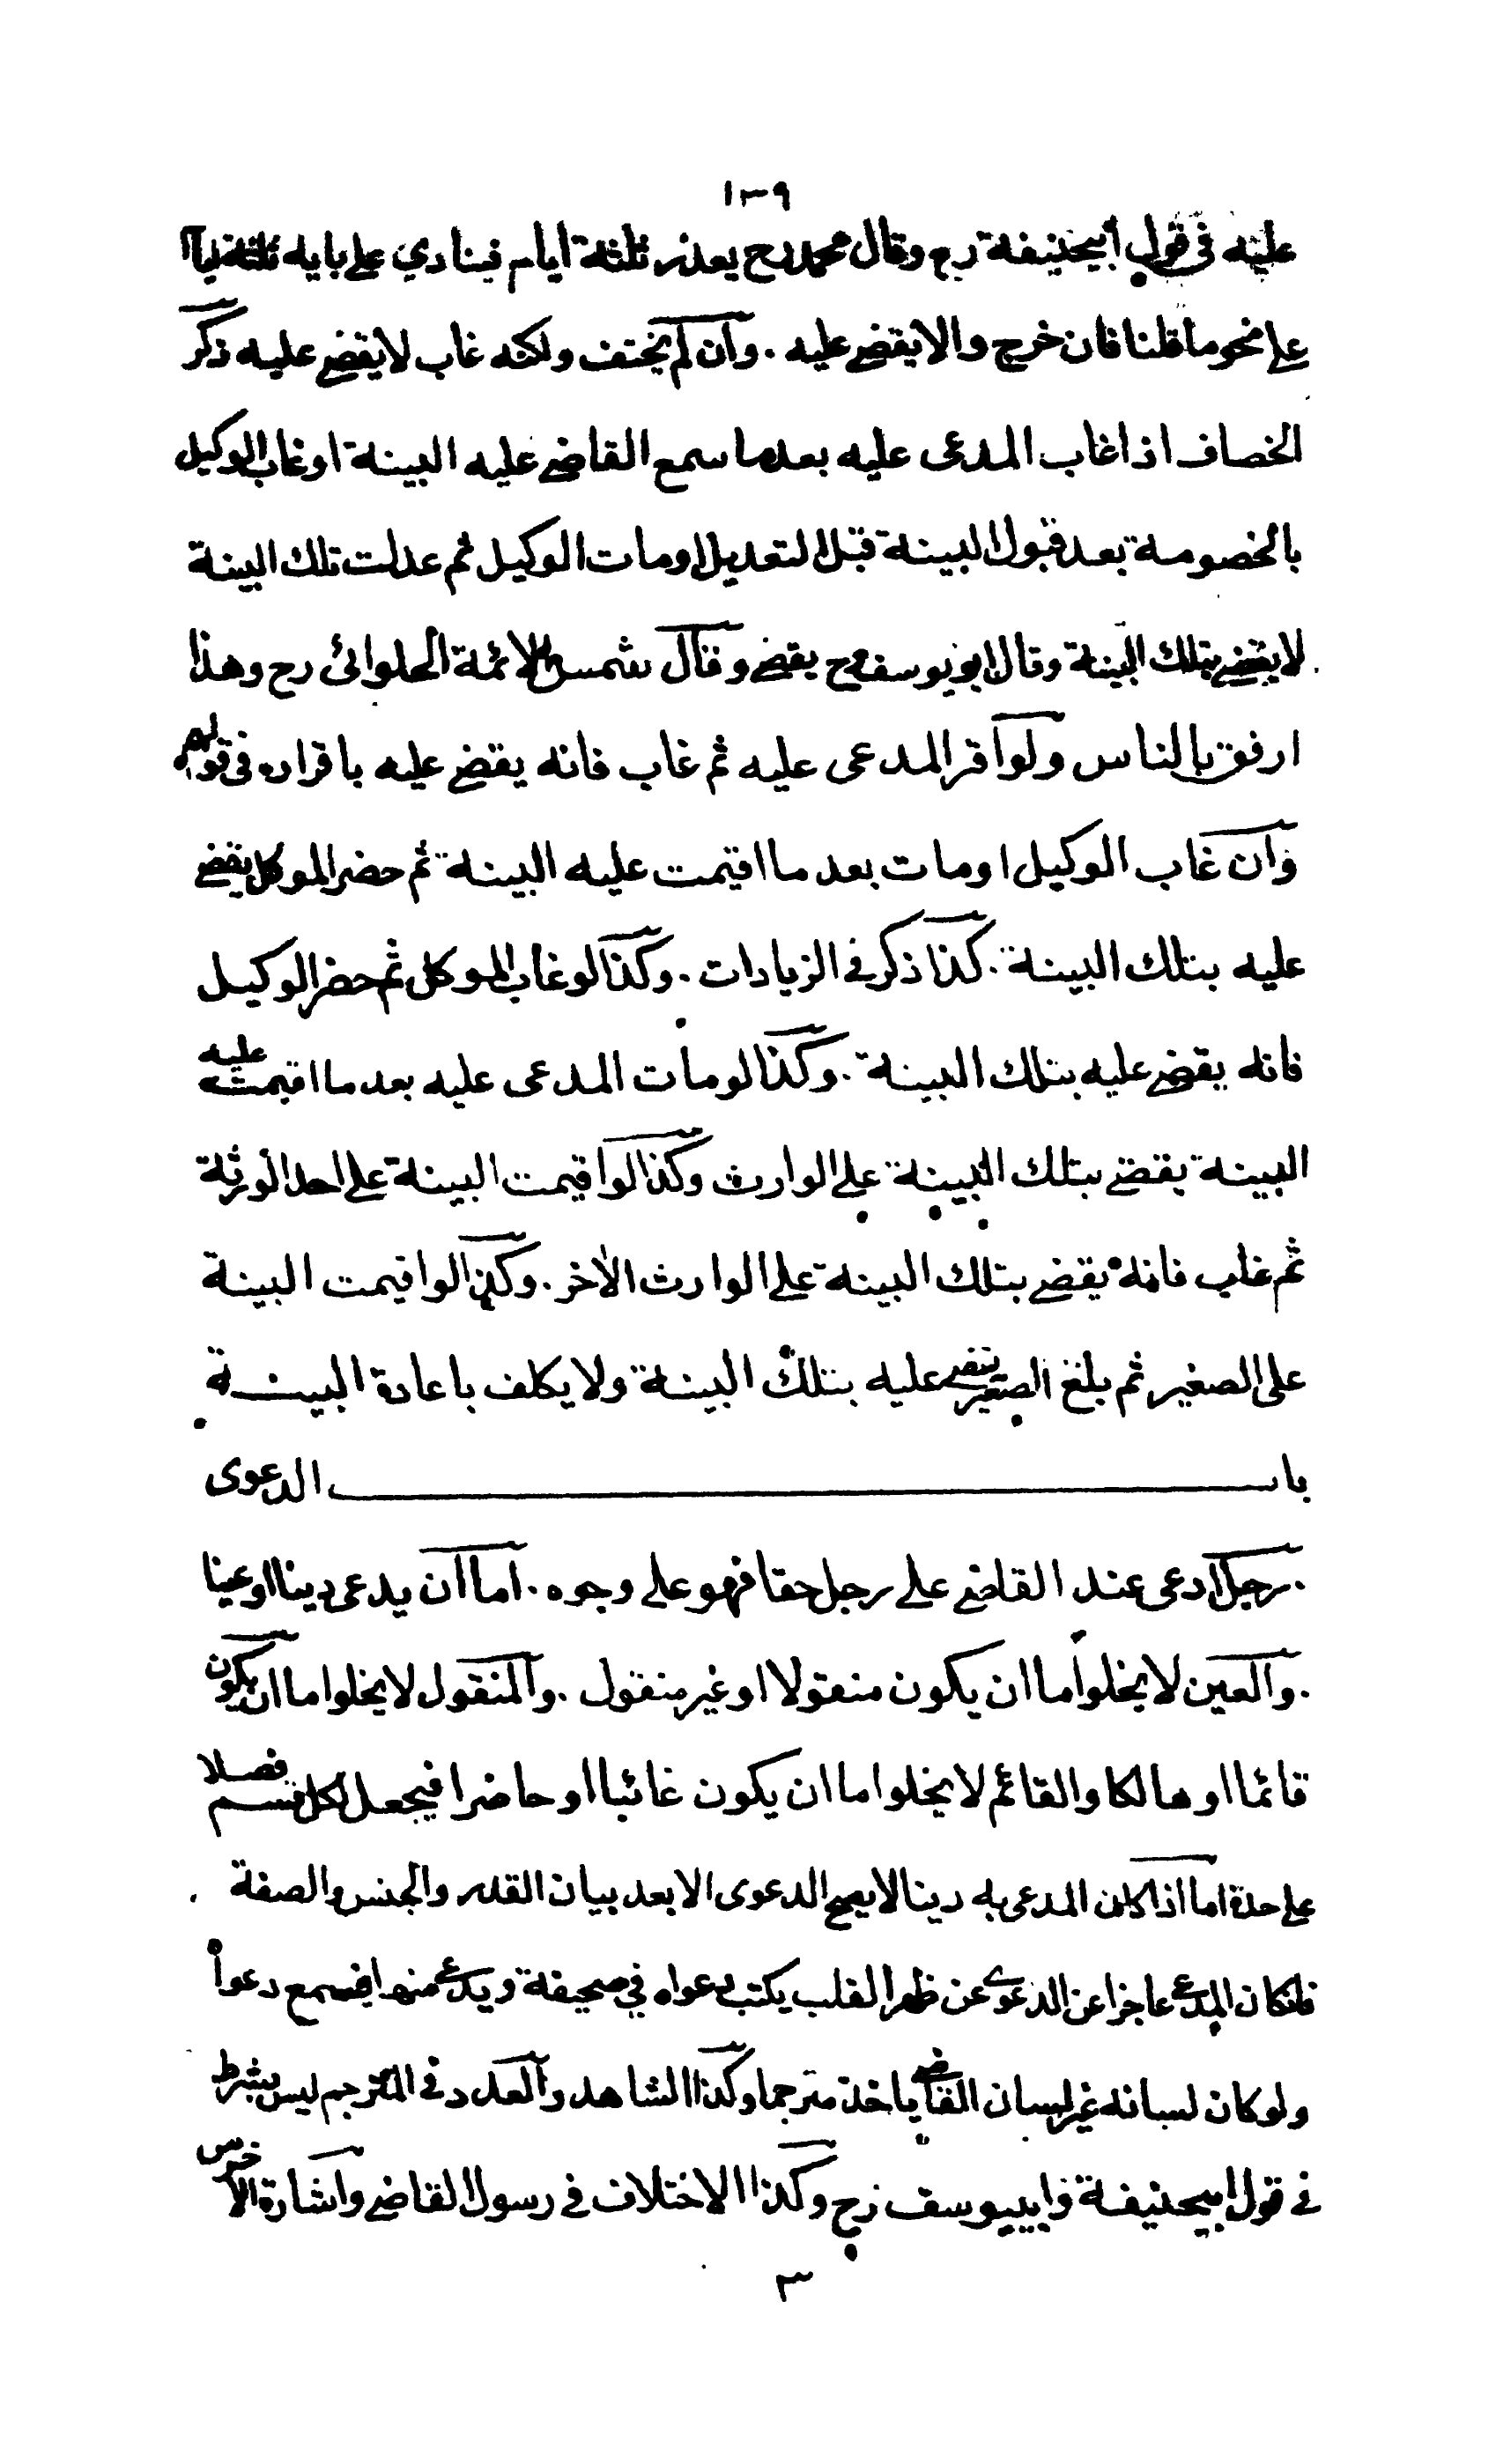 ١٣٩
عليه في قول ابيحنيفة رح وقال محمد رح يعذر ثلثة ايام فينادي على بابه ثلثة ايام
على نحو ما قلنا فان خرج والا يقضى عليه . وان لم يختف ولكنه غاب لا يقضى عليه ذكر
الخصاف اذا غاب المدعى عليه بعدما سمع القاضى عليه البينة او غاب الوكيل
بالخصومة بعد قبول البينة قبل التعديل او مات الوكيل ثم عدلت تلك البينة
لا يقضى بتلك البينة وقال ابو يوسف رح يقضى وقال شمس الائمة الحلوائى رح وهذا
ارفق بالناس ولو اقر المدعى عليه ثم غاب فانه يقضى عليه باقراره في قولهم
وان غاب الوكيل او مات بعد ما اقيمت عليه البينة ثم حضر الموكل يقضى
عليه بتلك البينة . كذا ذكر في الزيادات . وكذا لو غاب الموكل ثم حضر الوكيل
فانه يقضى عليه بتلك البينة . وكذا لو مات المدعى عليه بعد ما اقيمت عليه
البينة يقضى بتلك البينة على الوارث وكذا لو اقيمت البينة على احد الورثة
ثم غاب فانه يقضى بتلك البينة على الوارث الاخر . وكذا لو اقيمت البينة
على الصغير ثم بلغ الصغير يقضى عليه بتلك البينة ولا يكلف باعادة البينة
باب الدعوى
رجل ادعى عند القاضى على رجل حقا فهو على وجوه . اما ان يدعى دينا او عينا
. والعين لا يخلوا ما ان يكون منقولا او غير منقول . والمنقول لا يخلوا ما ان يكون
قائما او هالكا والقائم لا يخلوا ما ان يكون غائبا او حاضرا فيجعل لكل قسم فصلا
على حدة اما اذا كان المدعى به دينا لا يصح الدعوى الا بعد بيان القدر والجنس والصفة
فانكان المدعي عاجزا عن الدعوى عن ظهر القلب يكتب دعواه في صحيفة ويدعي منها فيسمع دعواه
ولو كان لسانه غير لسان القاضى ياخذ مترجما وكذا الشاهد والعدد في المترجم ليس بشرط
في قول ابيحنيفة وابييوسف رح وكذا الاختلاف في رسول القاضى واشارة الاخرس
٣